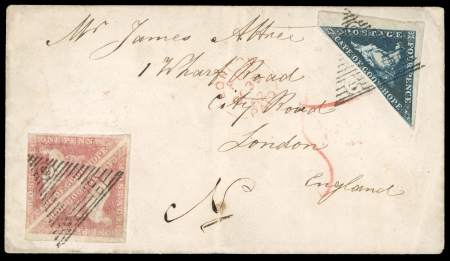 Mr James Attree
1 Wharf Road
City Road
London
England
N
POSTAGE
FOUR PENCE
CAPE OF GOOD HOPE
ONE PENNY